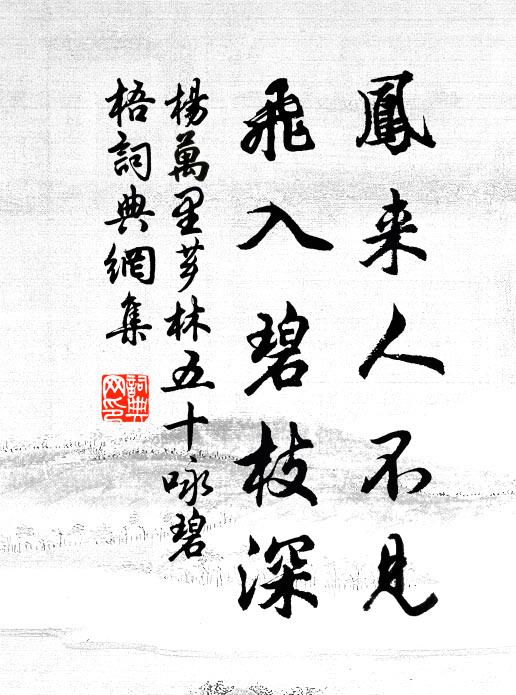 鳳来人不見
飛入碧枝深
楊萬里芗林五十咏碧
梧詞典網集
詞典
网印